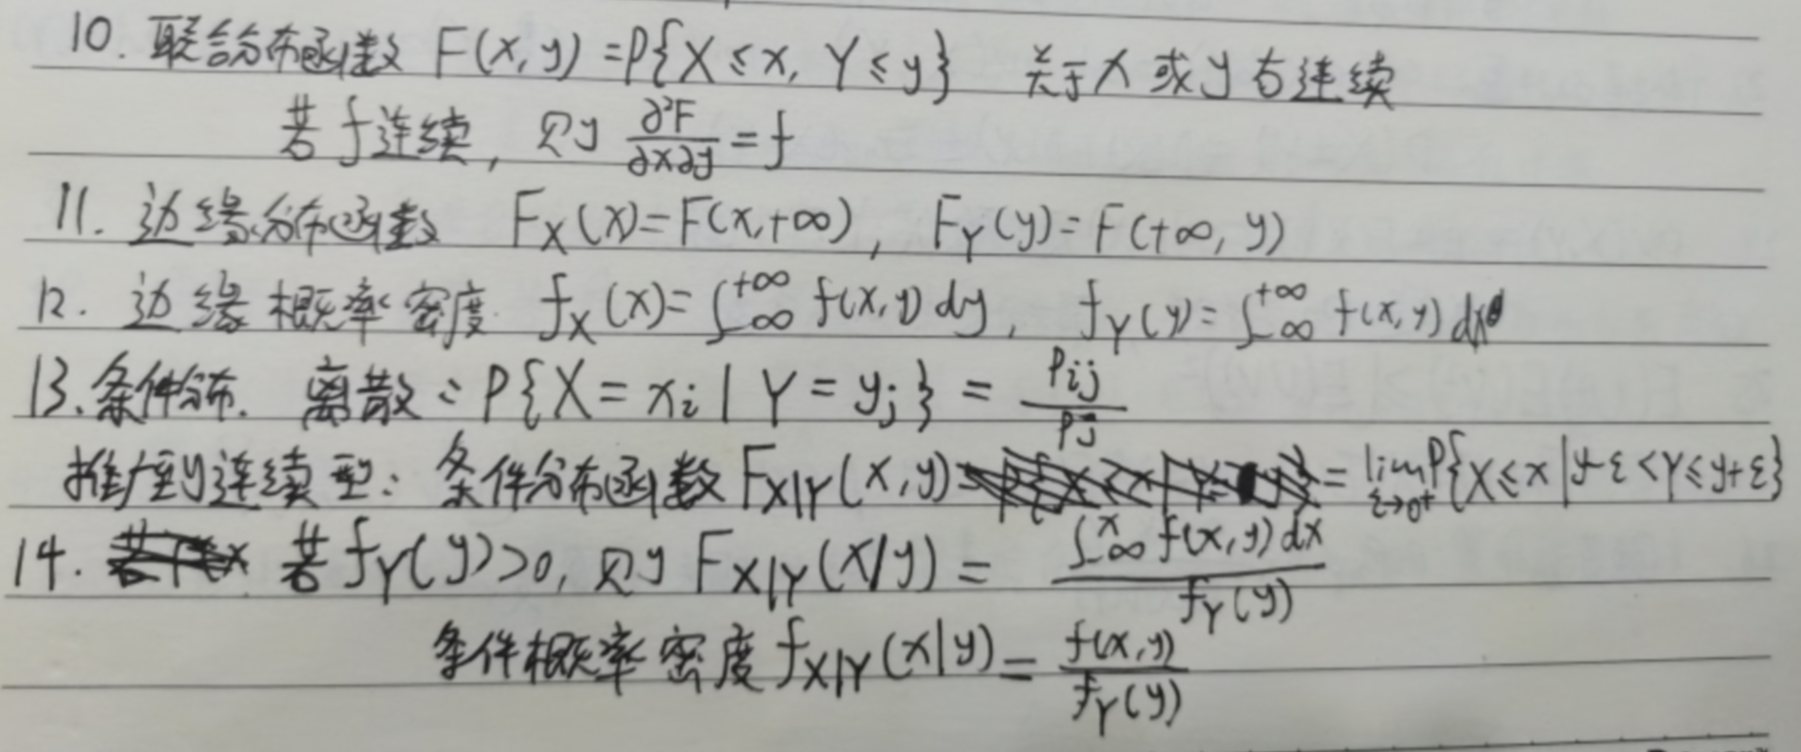 10. 联合分布函数 F(x,y)=P{X≤x, Y≤y} 关于x或y右连续
若f连续, 则 ∂²F/∂x∂y = f
11. 边缘分布函数 F_X(x)=F(x,+∞), F_Y(y)=F(+∞,y)
12. 边缘概率密度 f_X(x)=∫_{-∞}^{+∞} f(x,y)dy, f_Y(y)=∫_{-∞}^{+∞} f(x,y)dx
13. 条件分布. 离散: P{X=x_i|Y=y_j} = P_ij/P_j
推广到连续型: 条件分布函数 F_{X|Y}(x,y) = lim_{ε→0⁺} P{X≤x|y-ε<Y≤y+ε}
14. 若 f_Y(y)>0, 则 F_{X|Y}(x|y) = ∫_{-∞}^{x} f(x,y)dx / f_Y(y)
条件概率密度 f_{X|Y}(x|y) = f(x,y)/f_Y(y)